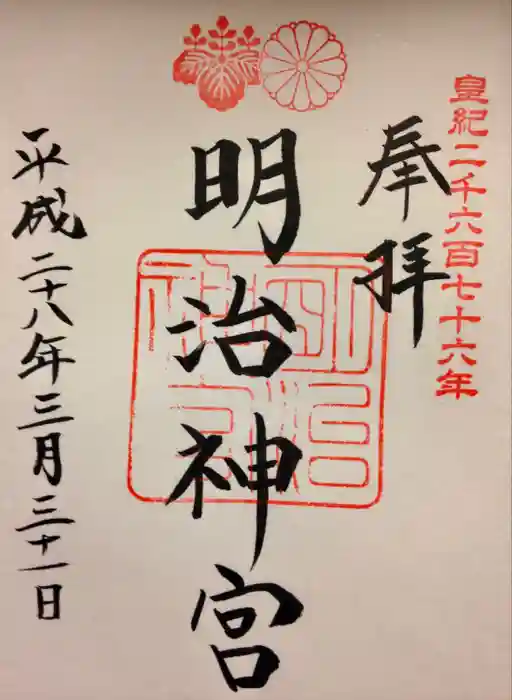 皇紀二千六百七十六年
奉拝
明治神宮
明治神宮
平成二十八年三月三十一日